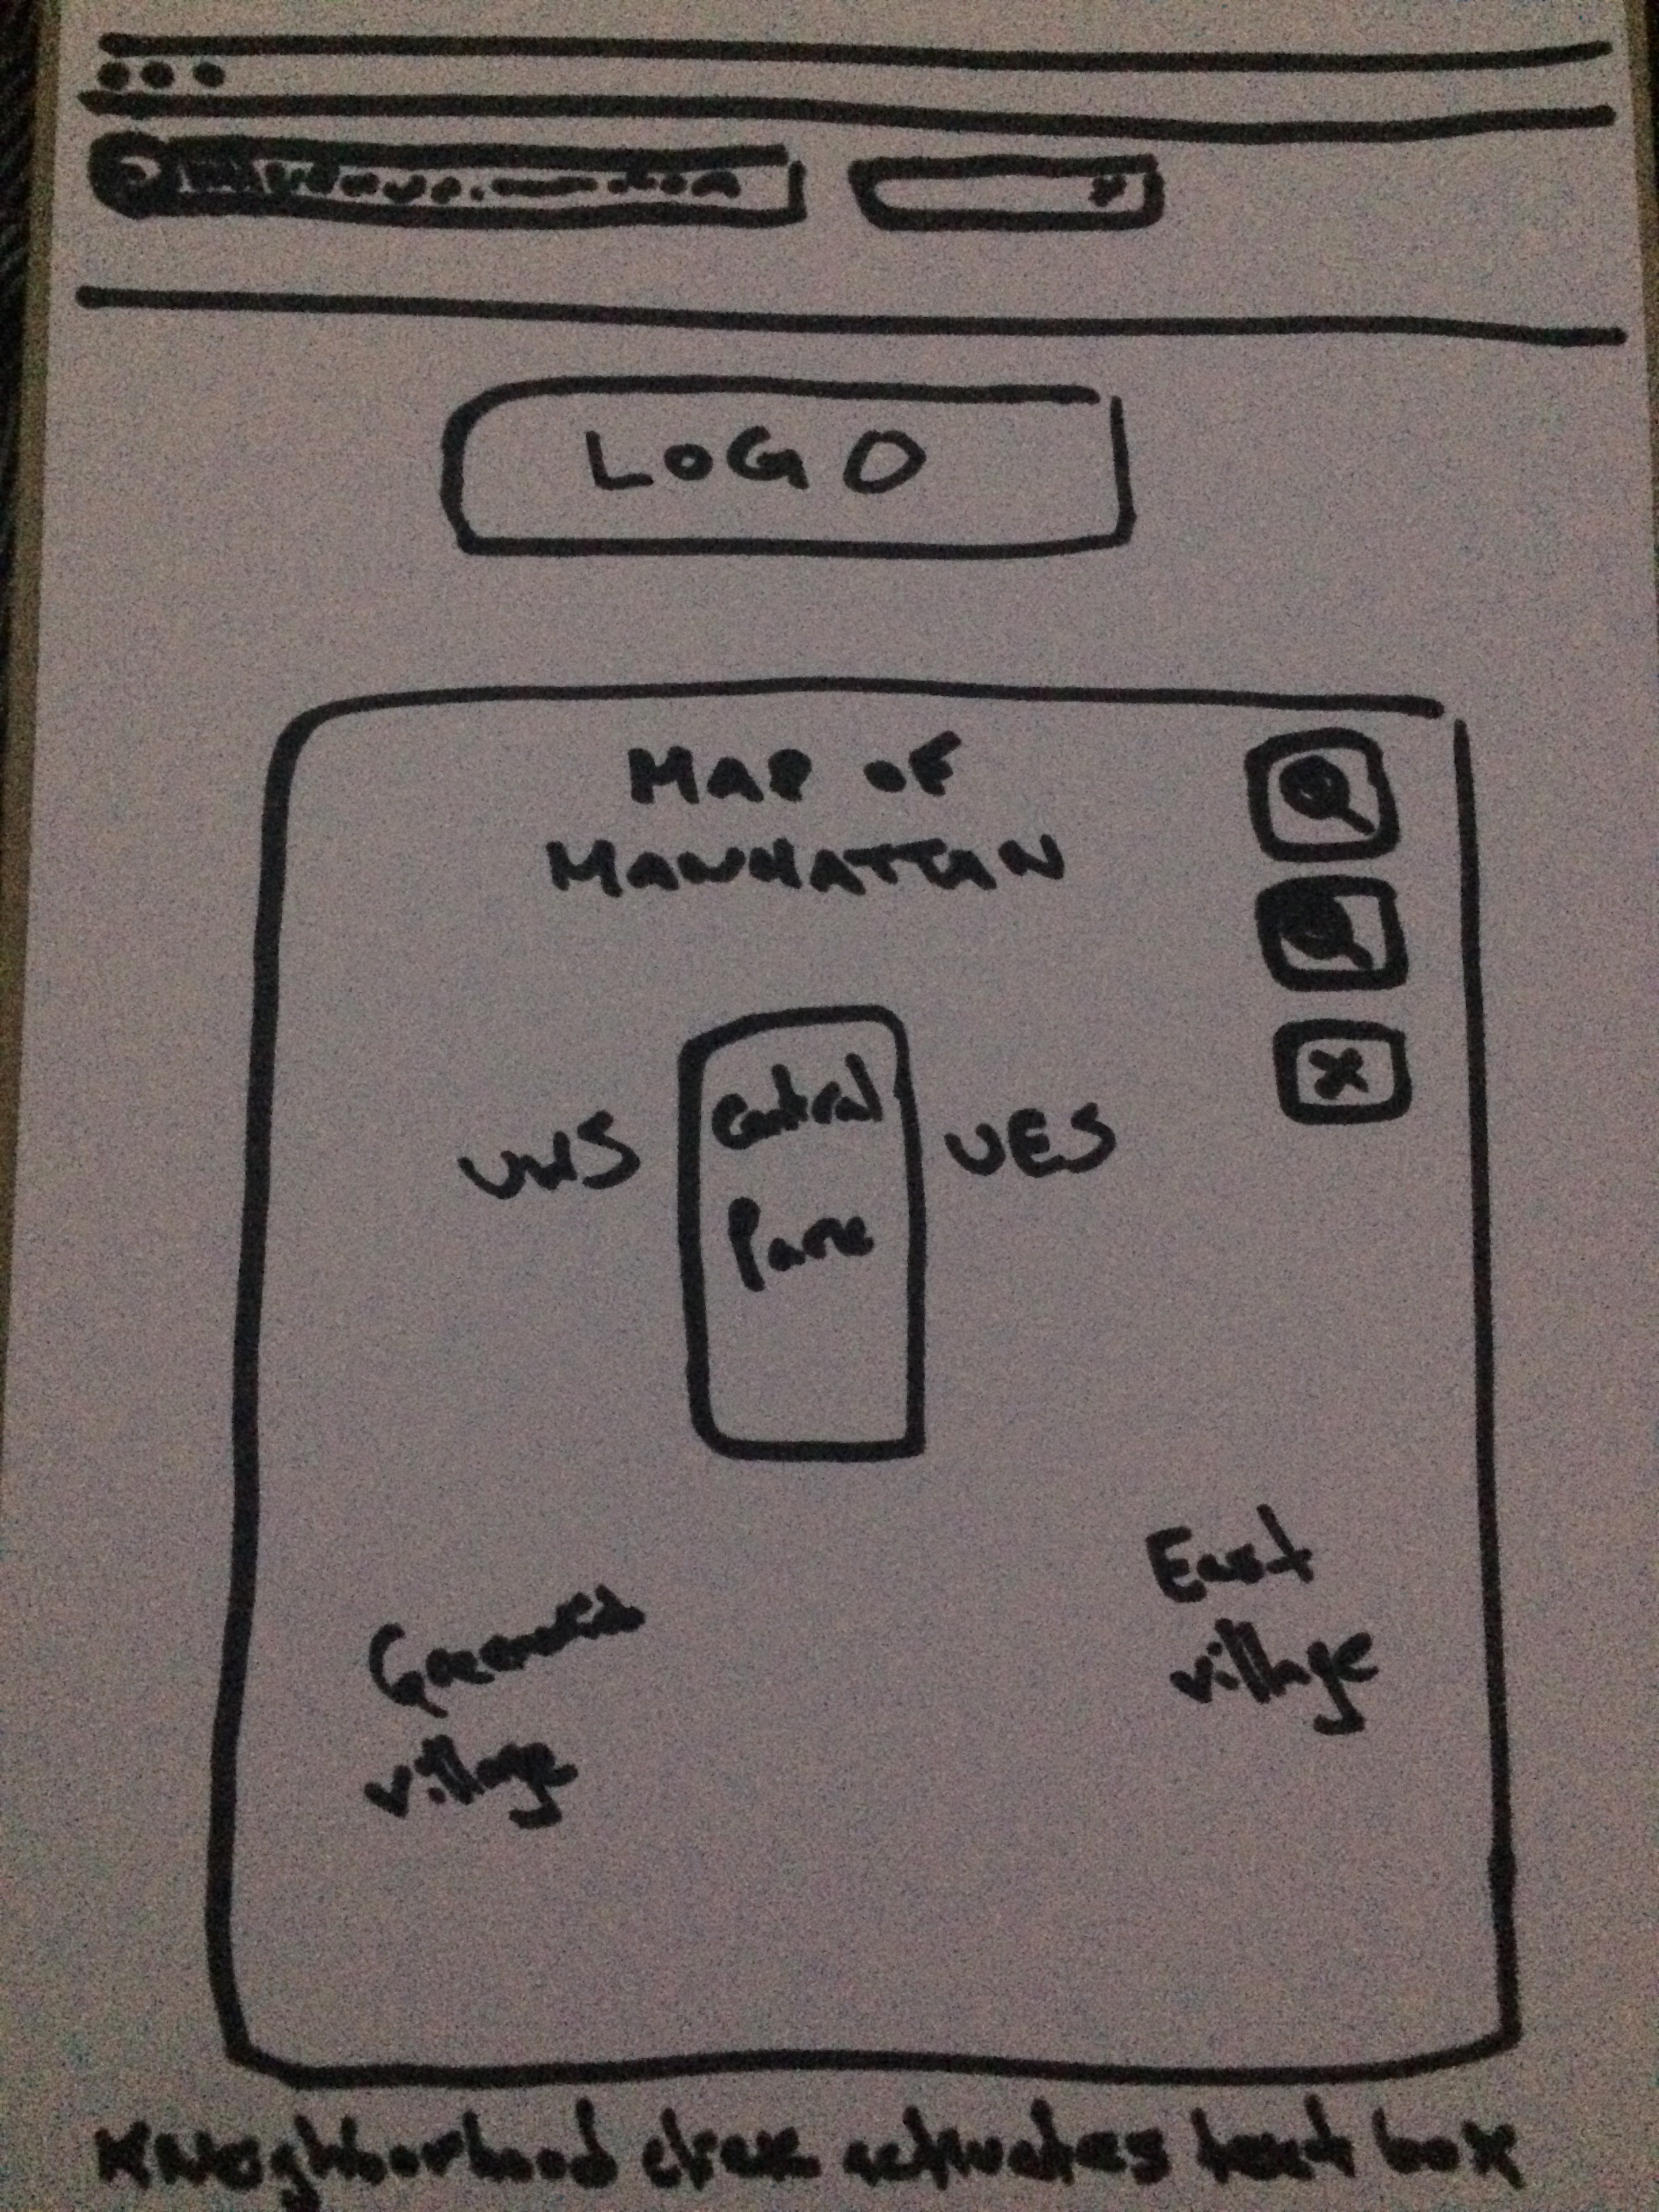 LOGO
MAP OF
MANHATTAN
UWS
Central
Park
UES
East
village
Greenwich
village
*Neighborhood click activates text box